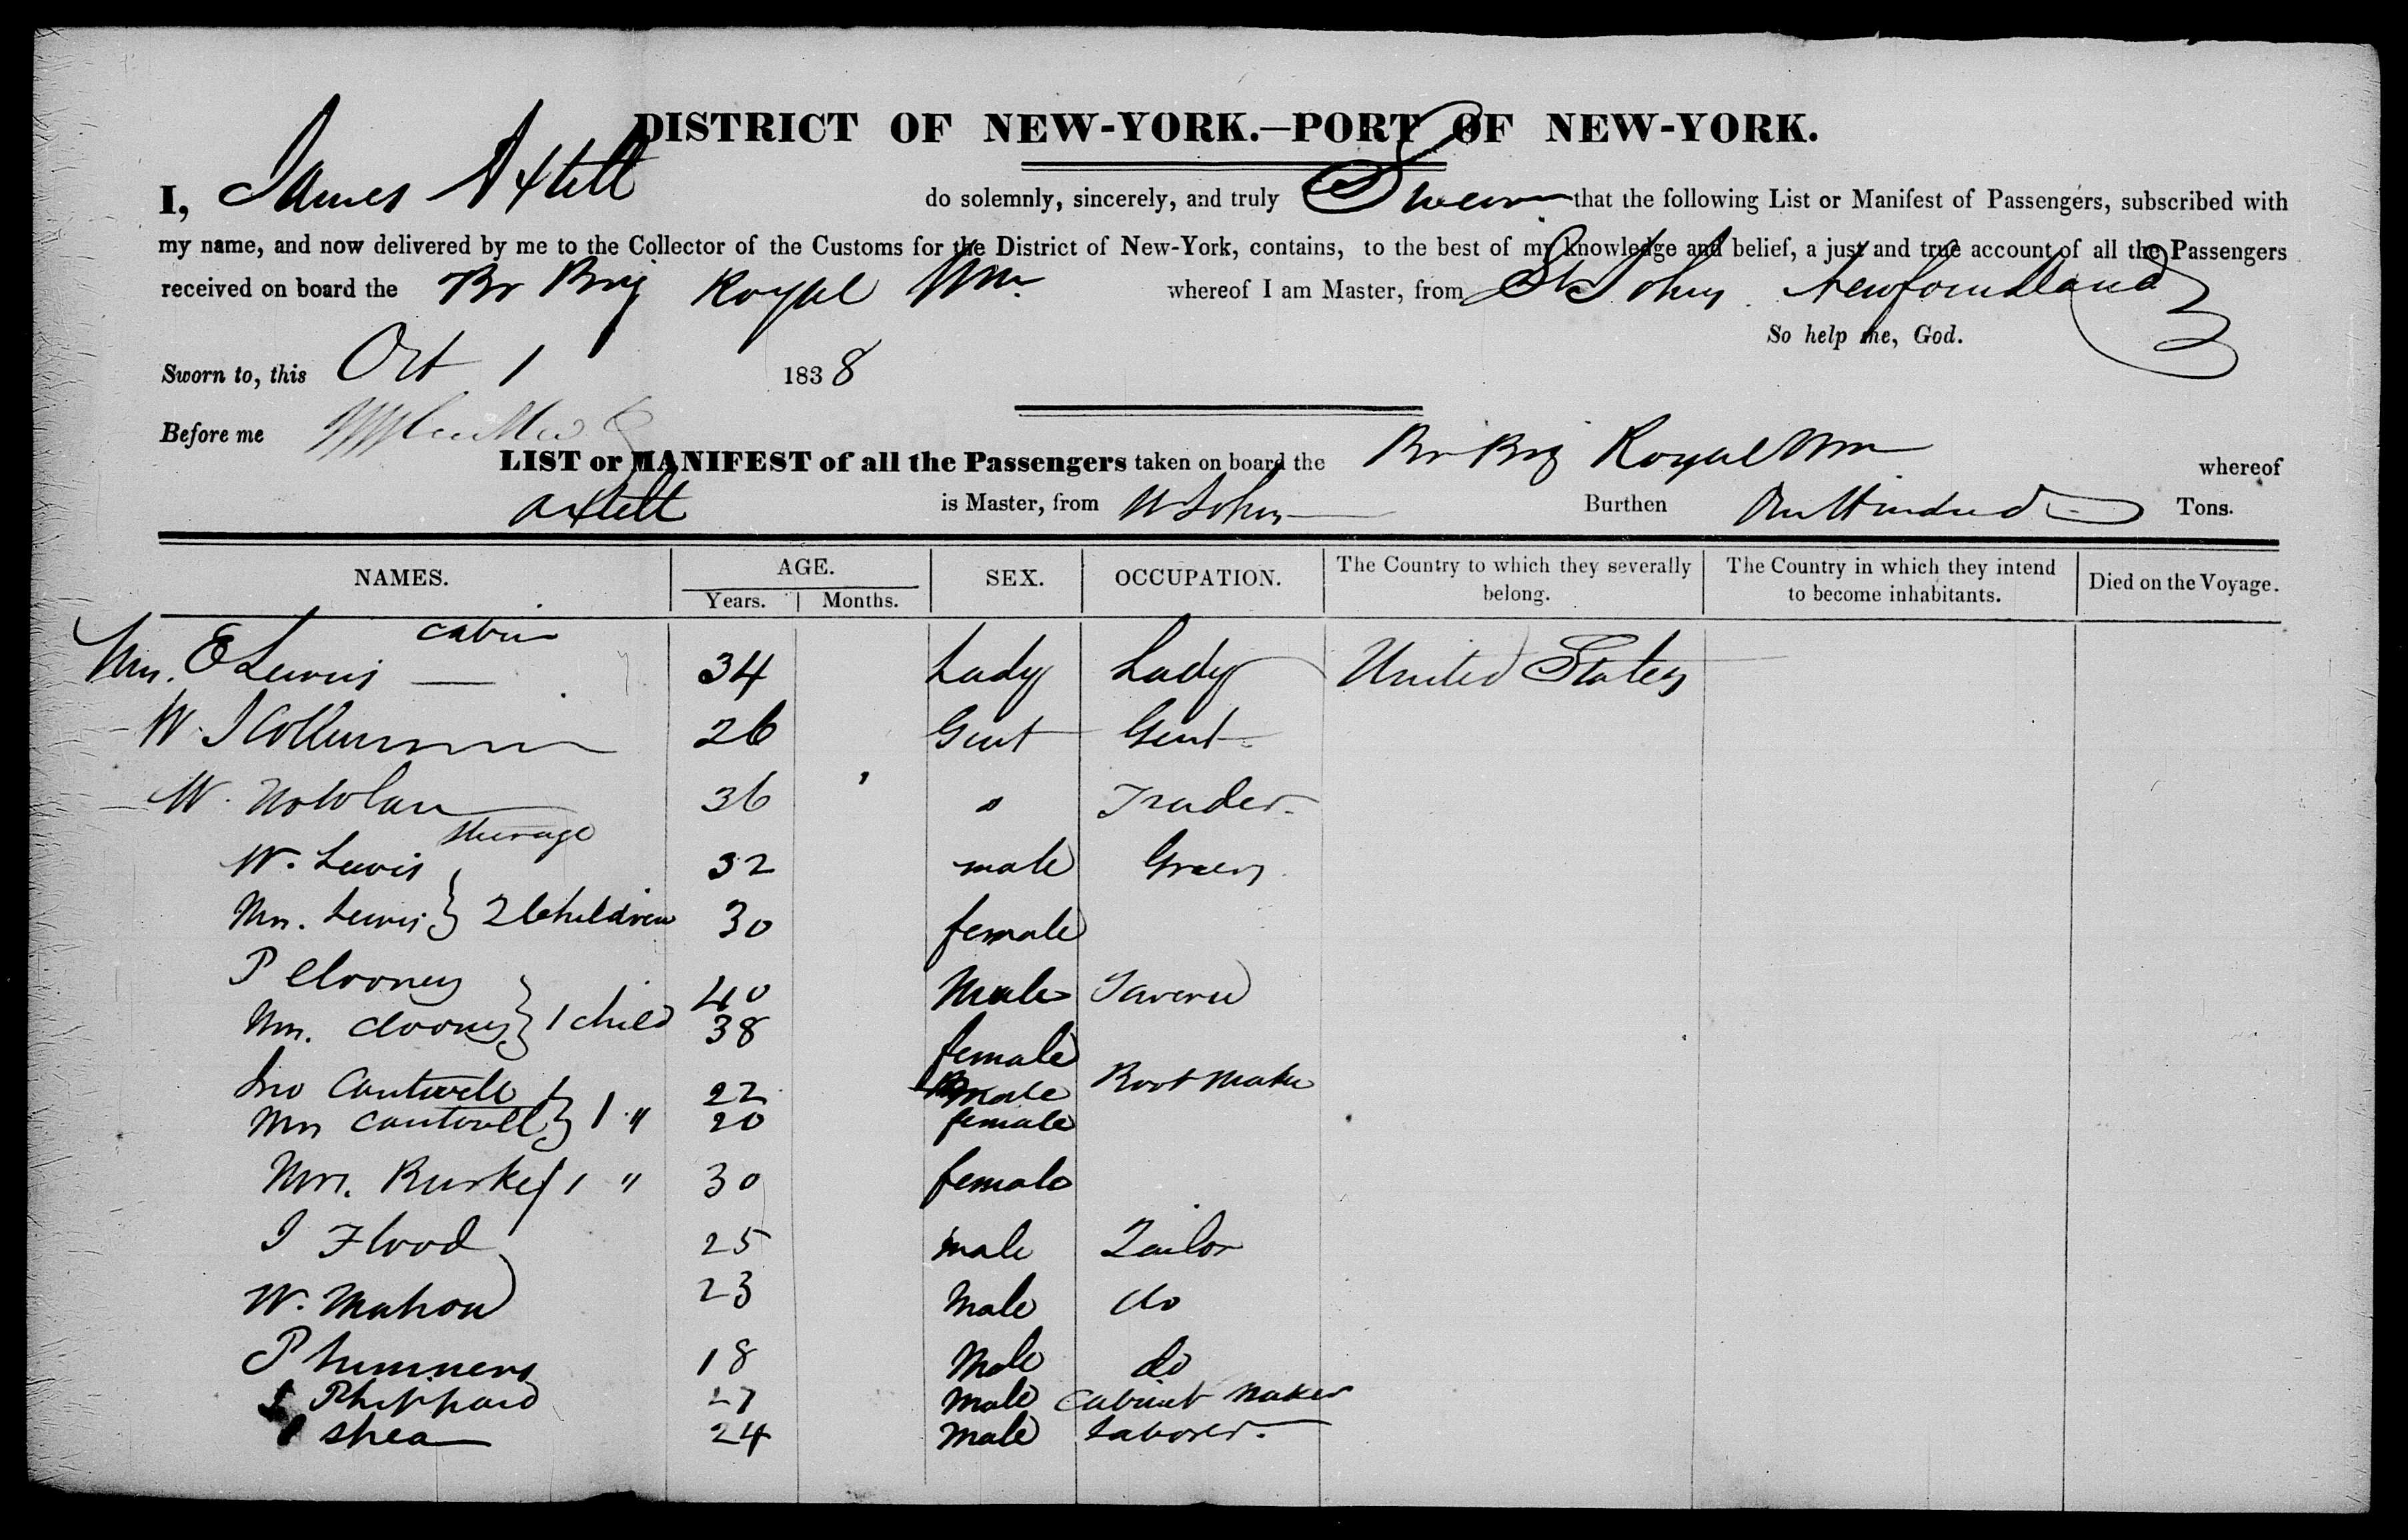 DISTRICT OF NEW-YORK.—PORT OF NEW-YORK.
I, James Axtell do solemnly, sincerely, and truly Swear that the following List or Manifest of Passengers, subscribed with
my name, and now delivered by me to the Collector of the Customs for the District of New-York, contains, to the best of my knowledge and belief, a just and true account of all the Passengers
received on board the Br Brig Royal Wm. whereof I am Master, from St Johns Newfoundland
So help me, God.
Sworn to, this Oct 1 1838
Before me
LIST or MANIFEST of all the Passengers taken on board the Br Brig Royal Wm whereof
Axtell is Master, from St Johns Burthen One Hundred Tons.
NAMES. AGE. Years. Months. SEX. OCCUPATION. The Country to which they severally belong. The Country in which they intend to become inhabitants. Died on the Voyage.
cabin
Mrs. E Lewis — 34 Lady Lady United States
W. J 26 Gent Gent
W. Nowlan 36 " Trader
Steerage
W. Lewis 32 male
Mrs. Lewis } 2 Children 30 female
P Clooney 40 Male Tavern
Mrs. Clooney } 1 child 38 female
Jno Cantwell 22 male Boot Maker
Mrs Cantwell } 1 " 20 female
Mrs. Burke } 1 " 30 female
J Flood 25 male Tailor
W. Mahon 23 Male do
P 18 Male do
Phippard 27 Male Cabinet Maker
Shea 24 Male Laborer.